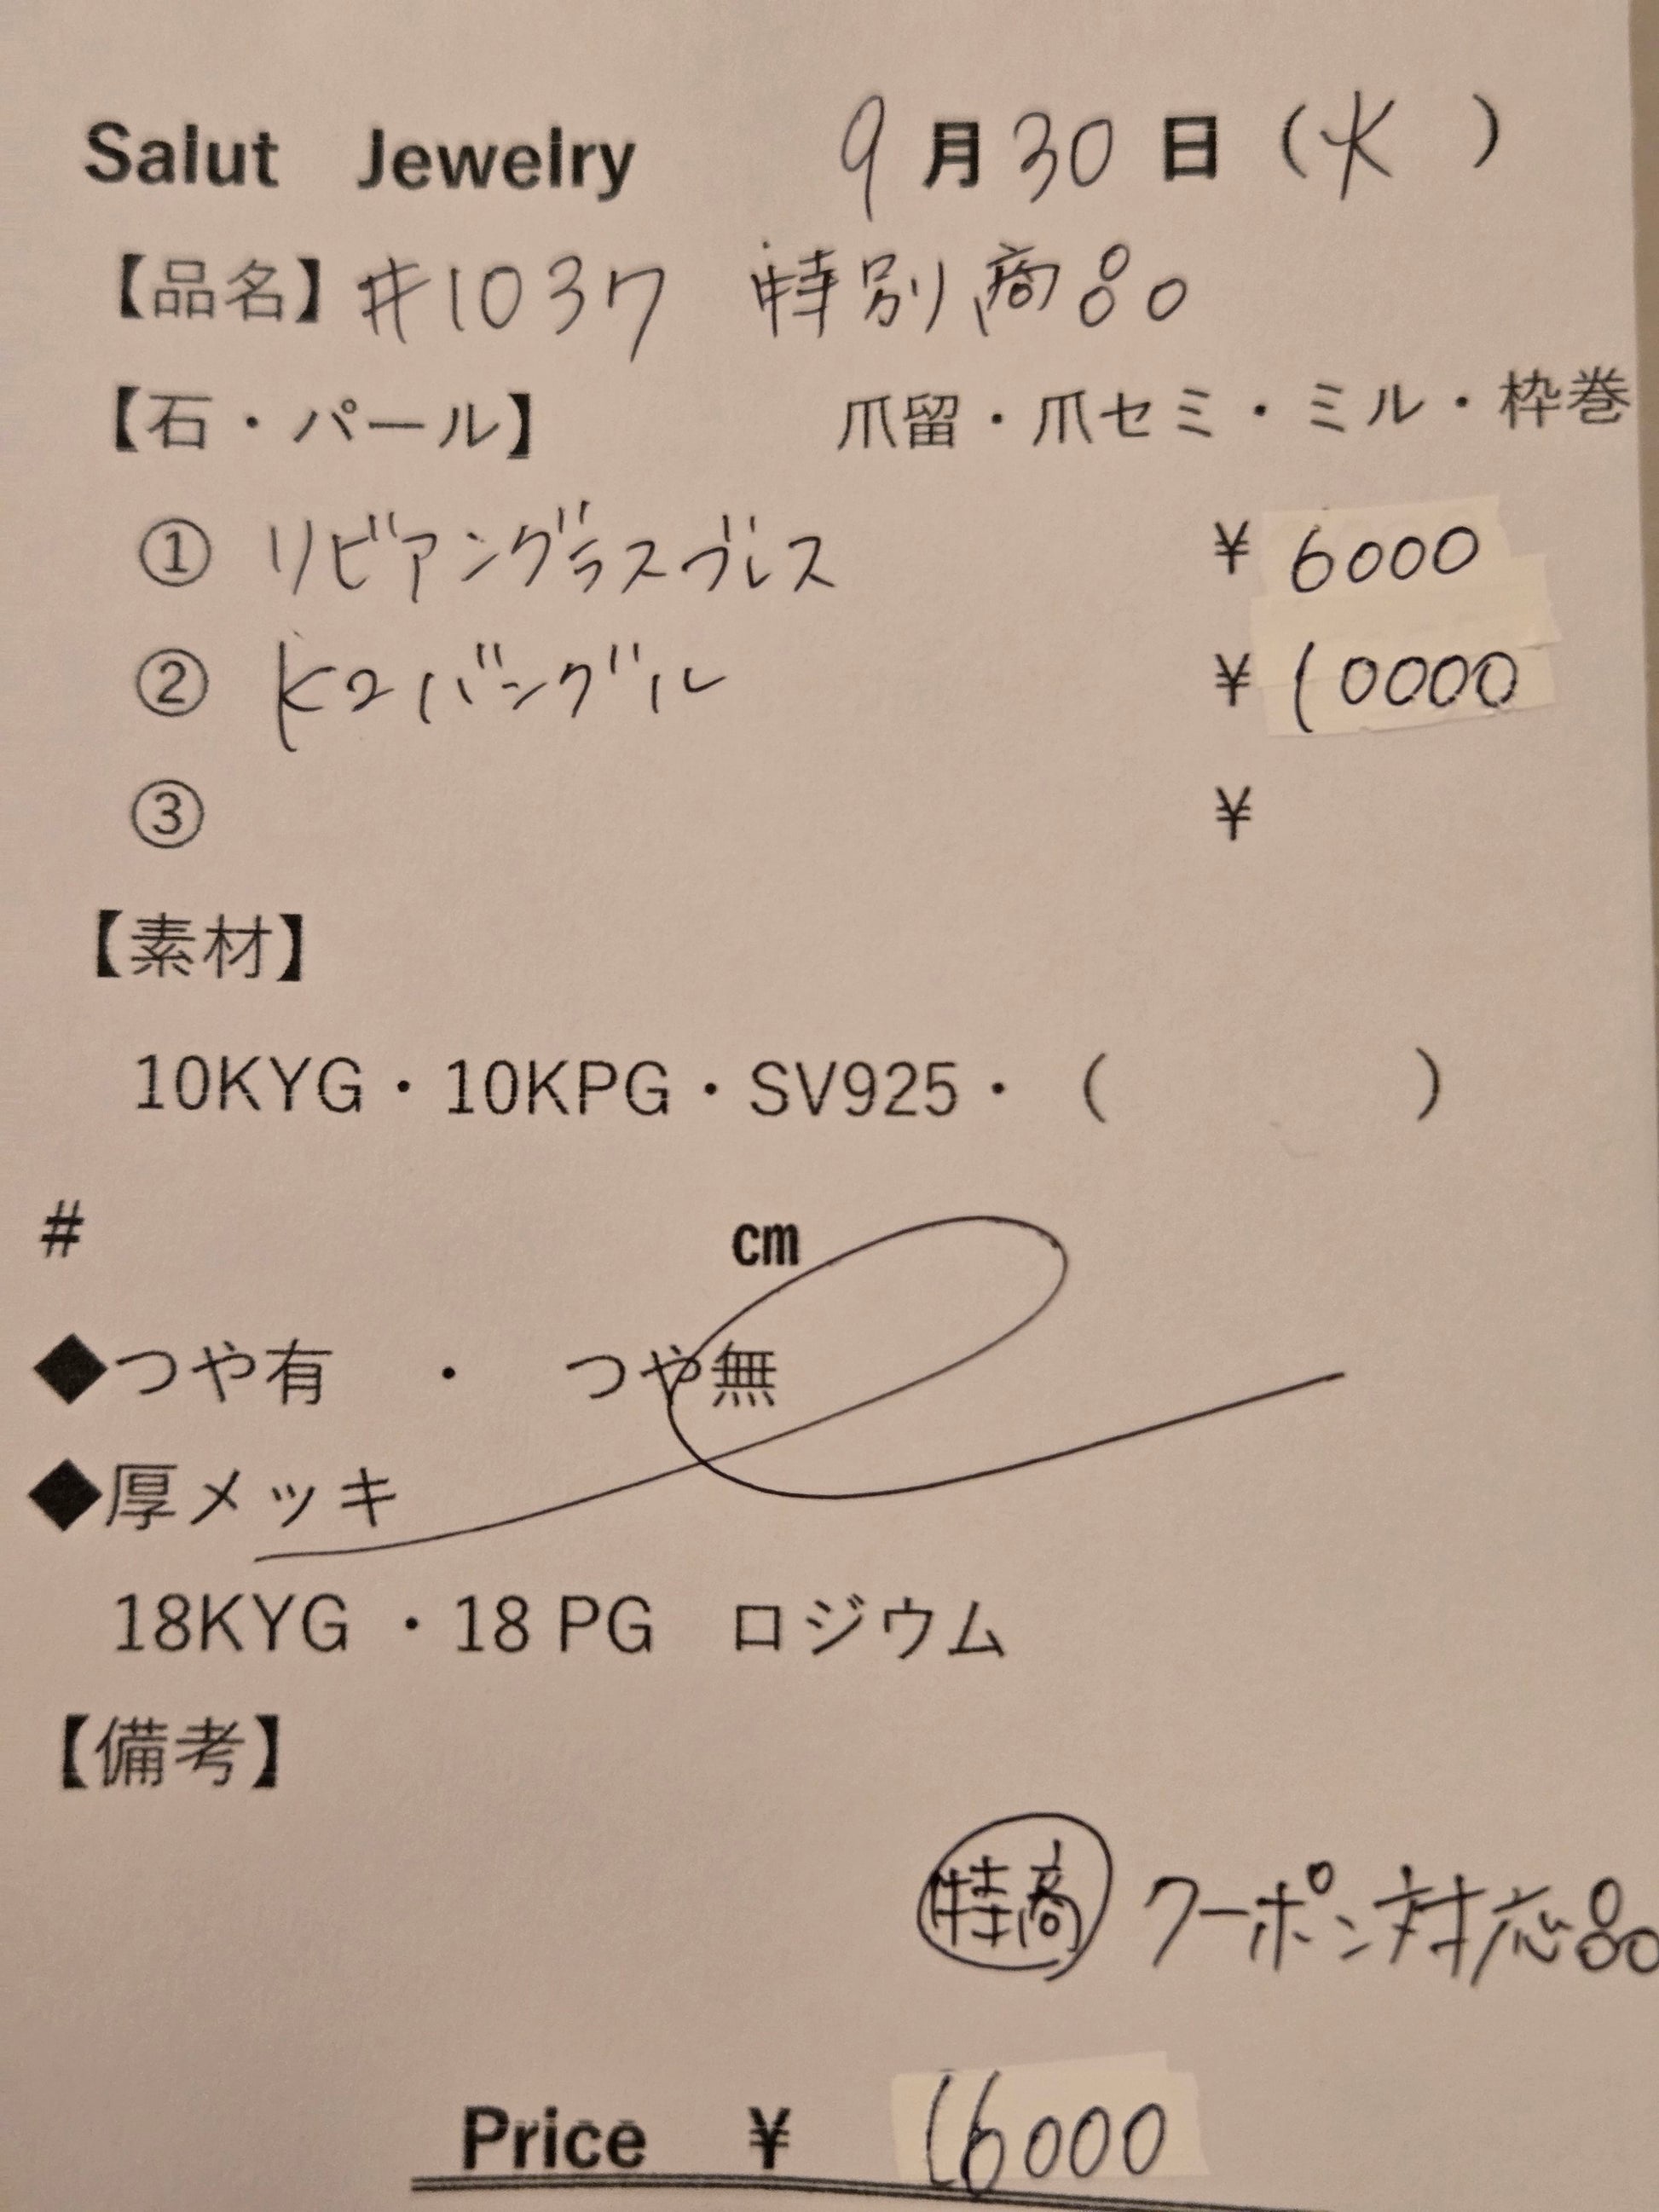 Salut Jewelry 9月30日(火)
【品名】#1037 特別商品
【石・パール】 爪留・爪セミ・ミル・枠巻
① リビアングラスブレス ¥6000
② K2バングル ¥10000
③ ¥
【素材】
10KYG・10KPG・SV925・( )
# cm
◆つや有 ・ つや無
◆厚メッキ
18KYG ・18 PG ロジウム
【備考】
特商 クーポン対応品
Price ¥ 16000